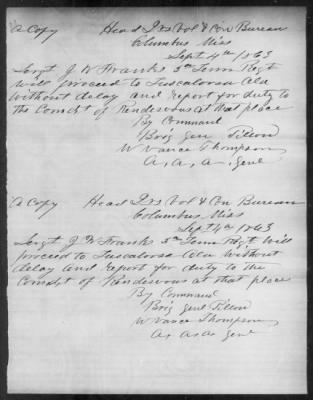 A Copy Head Qrs Vol & Con Bureau
Columbus Miss
Sept 4th 1863
Sergt J W Franks 5th Tenn Regt
will proceed to Tuscaloosa Ala
without delay and report for duty to
the Comdgt of Rendezvous at that place
By Command
Brig Gen Pillow
W Vance Thompson
A. A. A. Genl
A Copy Head Qrs Vol & Con Bureau
Columbus Miss
Sept 4th 1863
Sergt J W Franks 5th Tenn Regt will
proceed to Tuscaloosa Ala without
delay and report for duty to the
Comdgt of Rendezvous at that place
By Command
Brig Genl Pillow
W Vance Thompson
A. A. A. Genl